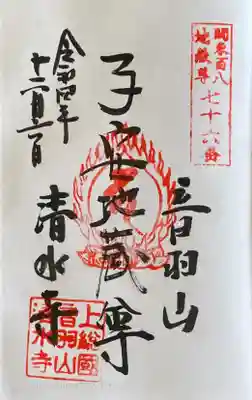 関東百八
地蔵尊
七十六番
音羽山
子安地蔵尊
清水寺
令和四年
十二月三日
上総国
音羽山
清水寺